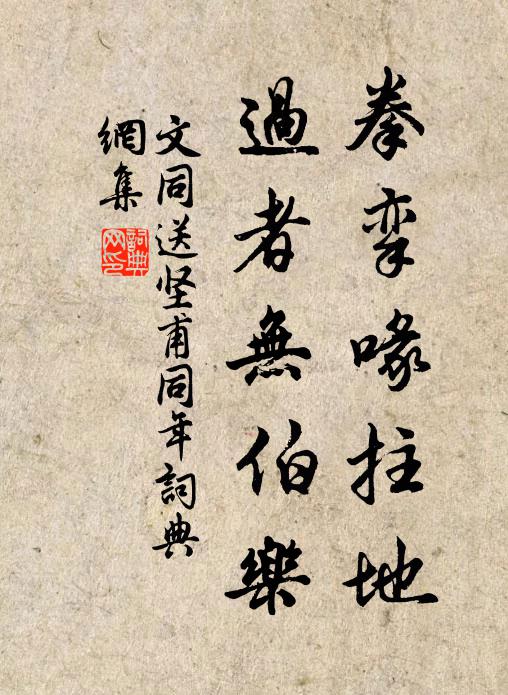 拳挛喙拄地
過者無伯樂
文同送坚甫同年詞典
網集
詞典网印